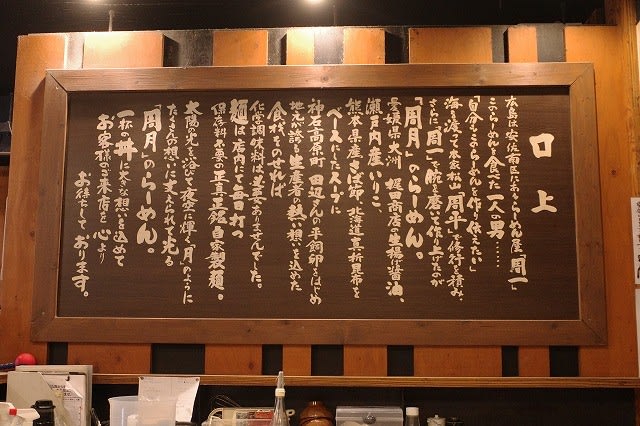 口上
広島は安佐南区にあるらーめん屋「周一」
このらーめんを食べた一人の男……
「自分もこのらーめんを作り伝えたい」
海を渡って本家松山 周平で修行を積み、
さらに周一で腕を磨いて作り上げたのが
「周月」のらーめん。
愛媛県大洲 梶商店の生揚げ醤油、
瀬戸内産いりこ、
熊本県産さば節、北海道真折昆布を
ベースにしたスープに
神石高原町 田辺さんの平飼卵をはじめ
地元が誇る生産者の熱い想いを込めた
食材をのせれば
化学調味料は必要ありませんでした。
麺は店内にて毎日打つ
保存料不要の正真正銘自家製麺。
太陽の光を浴びて夜空に輝く「月」のように
たくさんの想いに支えられて光る
「周月」のらーめん。
一杯の丼に大きな想いを込めて
お客様のご来店を心より
お待ちしております。